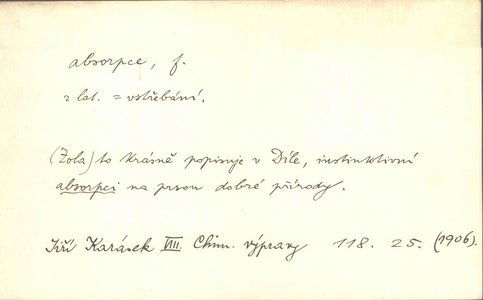 absorpce, f.
z lat. = vstřebání.
(Zola) to krásně popisuje v Díle, instinktivní
absorpci na prsou dobré přírody.
Jiří Karásek VIII. Chim. výpravy 118. 25. (1906).